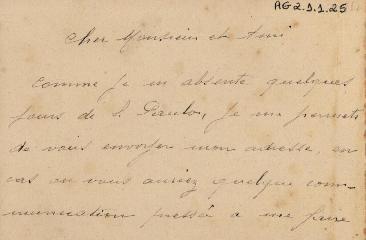 AG2.1.1.25
Cher Monsieur et Ami
Comme je m absente quelques
jours de S. Paulo, je me permets
de vous envoyer mon adresse, en
cas ou vous auriez quelque com-
munication pressée a me faire